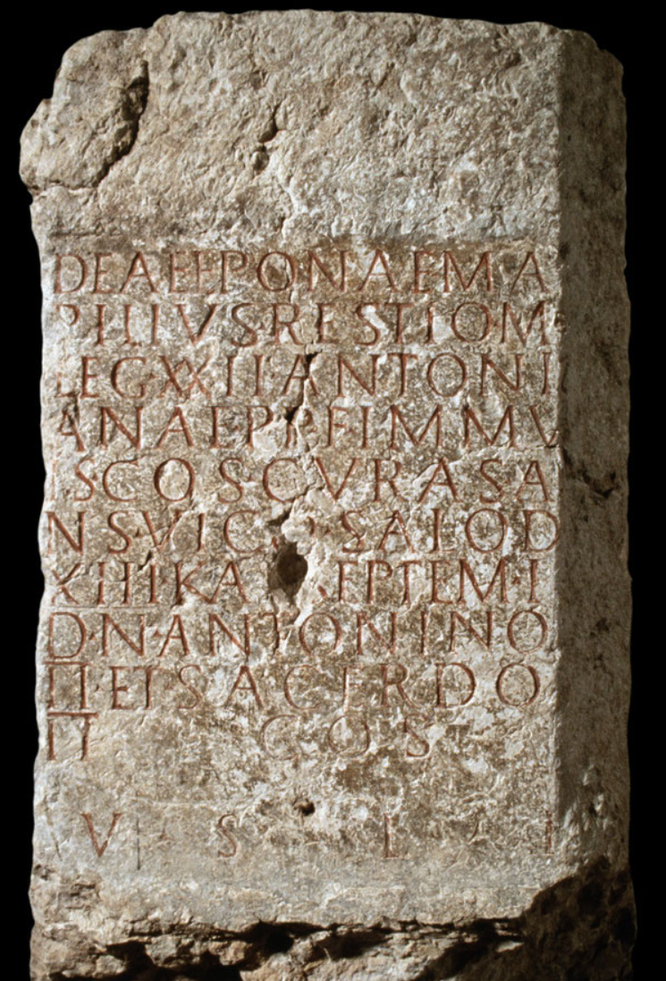 DEAE EPONAE MA
PILIVS·RESTIO·M
LEG·XXII·ANTONI
ANAE P P F IMMV
IS COS CVRAS A
NS·VICO SALOD
XIIII KA SEPTEM
D·N·ANTONINO
II·ET SACERDO
II COS
V S L